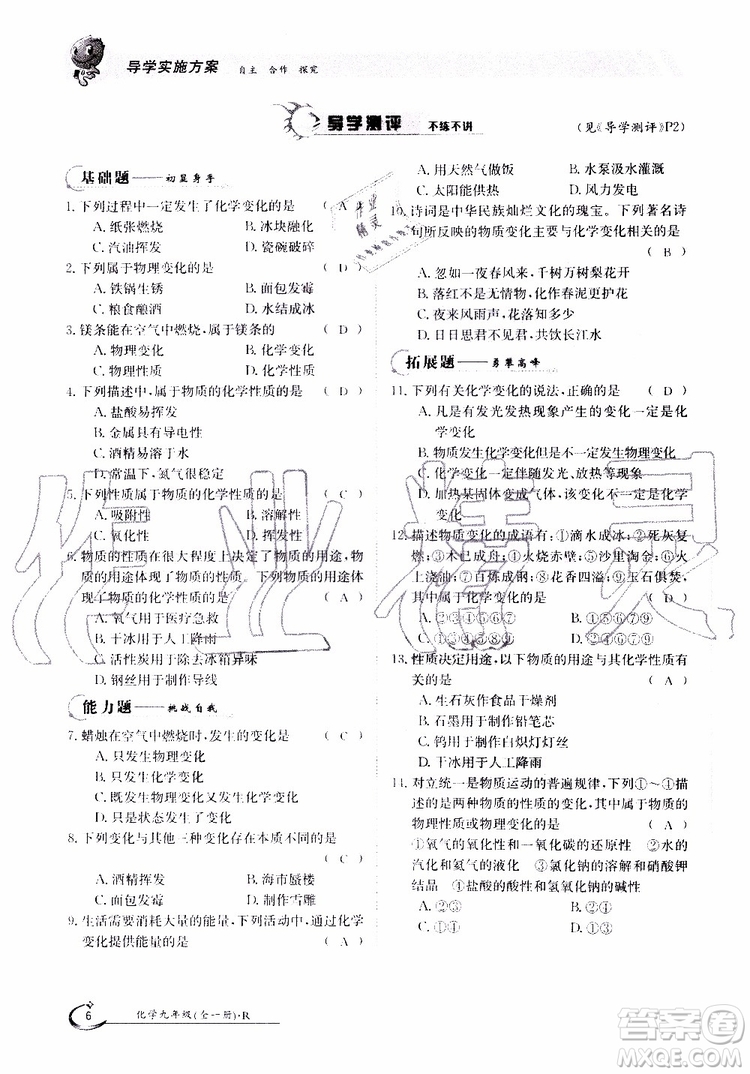 导学实施方案 自主 合作 探究
导学测评 不练不讲 (见《导学测评》P2)
基础题——初显身手
1. 下列过程中一定发生了化学变化的是 ( A )
A. 纸张燃烧 B. 冰块融化
C. 汽油挥发 D. 瓷碗破碎
2. 下列属于物理变化的是 ( D )
A. 铁锅生锈 B. 面包发霉
C. 粮食酿酒 D. 水结成冰
3. 镁条能在空气中燃烧，属于镁条的 ( D )
A. 物理变化 B. 化学变化
C. 物理性质 D. 化学性质
4. 下列描述中，属于物质的化学性质的是
( D )
A. 盐酸易挥发
B. 金属具有导电性
C. 酒精易溶于水
D. 常温下，氮气很稳定
5. 下列性质属于物质的化学性质的是 ( C )
A. 吸附性 B. 溶解性
C. 氧化性 D. 挥发性
6. 物质的性质在很大程度上决定了物质的用途，物
质的用途体现了物质的性质。下列物质的用途体
现了物质的化学性质的是 ( A )
A. 氧气用于医疗急救
B. 干冰用于人工降雨
C. 活性炭用于除去冰箱异味
D. 铜丝用于制作导线
能力题——挑战自我
7. 蜡烛在空气中燃烧时，发生的变化是 ( C )
A. 只发生物理变化
B. 只发生化学变化
C. 既发生物理变化又发生化学变化
D. 只是状态发生了变化
8. 下列变化与其他三种变化存在本质不同的是
( C )
A. 酒精挥发 B. 海市蜃楼
C. 面包发霉 D. 制作雪雕
9. 生活需要消耗大量的能量，下列活动中，通过化学
变化提供能量的是 ( A )
A. 用天然气做饭 B. 水泵汲水灌溉
C. 太阳能供热 D. 风力发电
10. 诗词是中华民族灿烂文化的瑰宝。下列著名诗
句所反映的物质变化主要与化学变化相关的是
( B )
A. 忽如一夜春风来，千树万树梨花开
B. 落红不是无情物，化作春泥更护花
C. 夜来风雨声，花落知多少
D. 日日思君不见君，共饮长江水
拓展题——勇攀高峰
11. 下列有关化学变化的说法，正确的是 ( D )
A. 凡是有发光发热现象产生的变化一定是化学
变化
B. 物质发生化学变化，不一定发生物理变化
C. 化学变化一定伴随发光、放热等现象
D. 加热某固体变成气体，该变化不一定是物理
变化
12. 描述物质变化的成语有：①滴水成冰；②死灰复
燃；③木已成舟；④火烧赤壁；⑤沙里淘金；⑥火
上浇油；⑦百炼成钢；⑧花香四溢；⑨玉石俱焚。
其中属于化学变化的是 ( B )
A. ②③④⑥⑦ B. ②④⑥⑦⑨
C. ①③⑤⑧⑨ D. ①④⑤⑦⑨
13. 性质决定用途，以下物质的用途与其化学性质有
关的是 ( A )
A. 生石灰作食品干燥剂
B. 石墨用于制作铅笔芯
C. 钨用于制作白炽灯灯丝
D. 干冰用于人工降雨
14. 对立统一是物质运动的普遍规律，下列①～④描
述的是两种物质的性质的变化，其中属于物质的
物理性质与物理变化的是 ( A )
①氧气的氧化性和一氧化碳的还原性 ②水的
汽化和氦气的液化 ③氯化钠的溶解和硝酸钾
结晶 ④盐酸的酸性和氢氧化钠的碱性
A. ②③ B. ②④
C. ①③ D. ①④
6 化学九年级(全一册)·R
作业精灵
答案圈
MXQE.COM